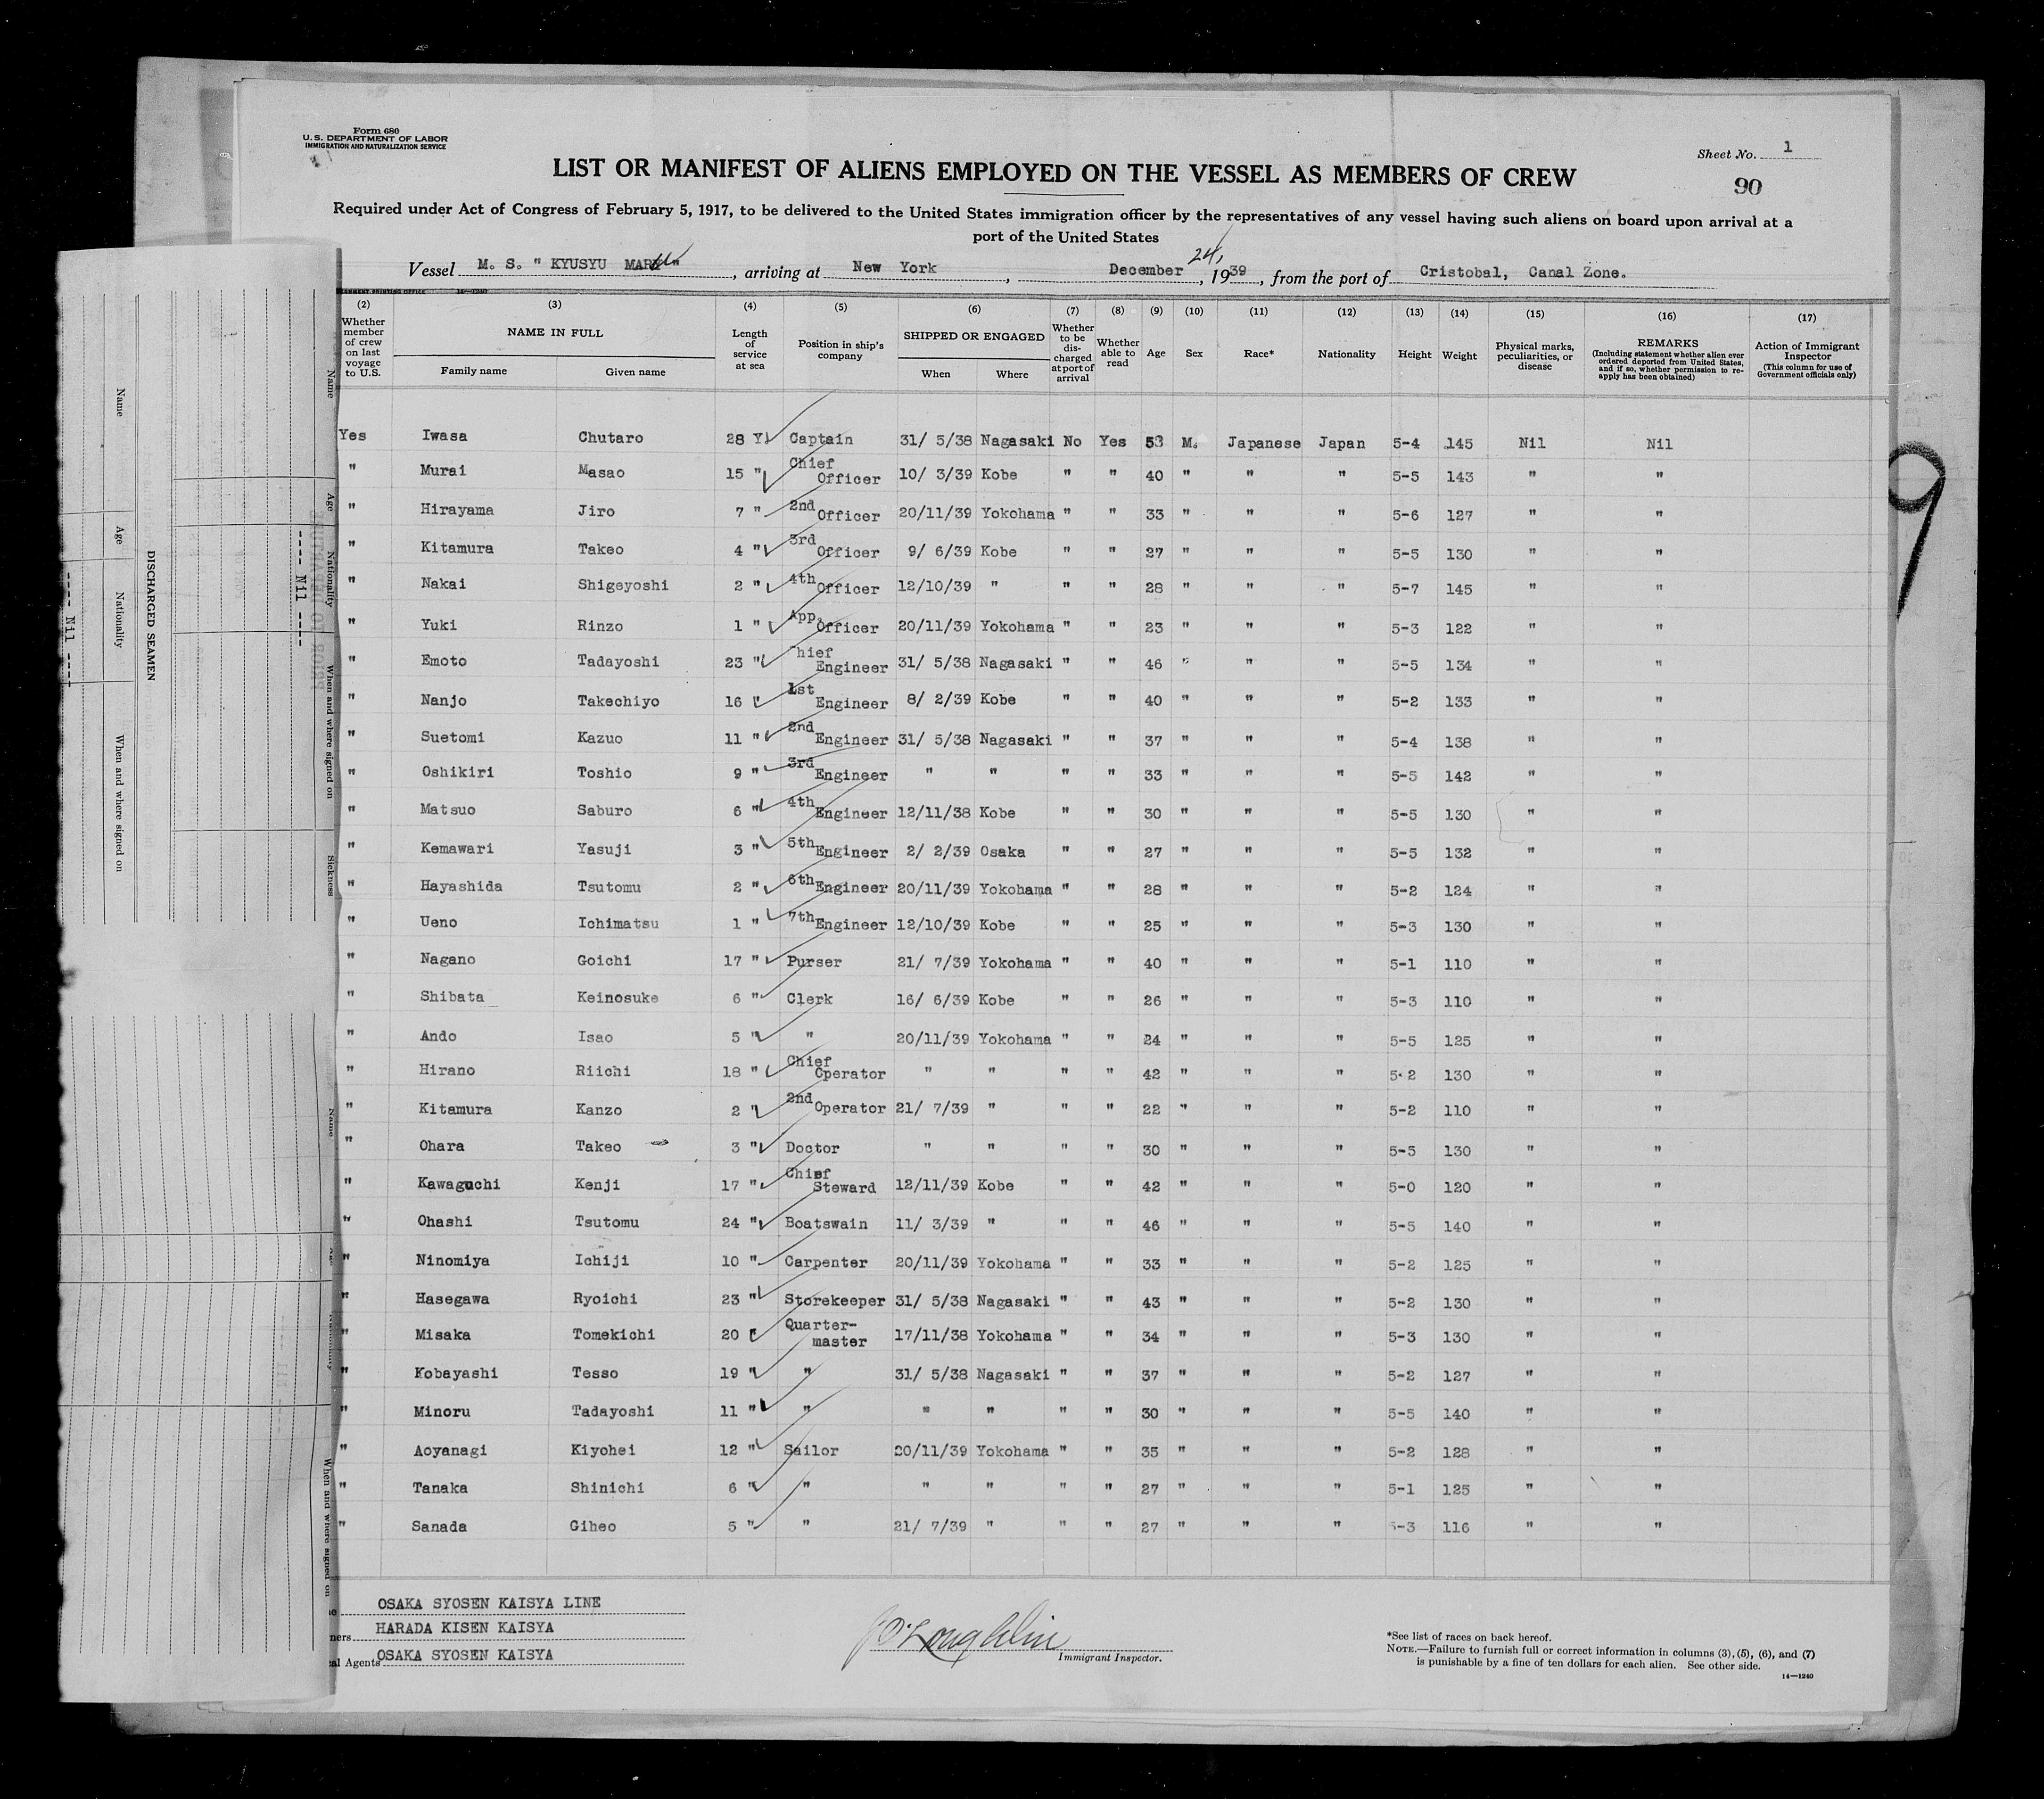 Form 680
U. S. DEPARTMENT OF LABOR
IMMIGRATION AND NATURALIZATION SERVICE
Sheet No. 1
90
LIST OR MANIFEST OF ALIENS EMPLOYED ON THE VESSEL AS MEMBERS OF CREW
Required under Act of Congress of February 5, 1917, to be delivered to the United States immigration officer by the representatives of any vessel having such aliens on board upon arrival at a
port of the United States
Vessel M. S. " KYUSYU MARU ", arriving at New York, December 24, 1939, from the port of Cristobal, Canal Zone.
(2) (3) (4) (5) (6) (7) (8) (9) (10) (11) (12) (13) (14) (15) (16) (17)
Whether member of crew on last voyage to U.S.
NAME IN FULL
Family name Given name
Length of service at sea
Position in ship's company
SHIPPED OR ENGAGED
When Where
Whether to be discharged at port of arrival
Whether able to read
Age
Sex
Race*
Nationality
Height
Weight
Physical marks, peculiarities, or disease
REMARKS
(Including statement whether alien ever ordered deported from United States, and if so, whether permission to re-apply has been obtained)
Action of Immigrant Inspector
(This column for use of Government officials only)
Yes Iwasa Chutaro 28 Y Captain 31/ 5/38 Nagasaki No Yes 53 M. Japanese Japan 5-4 145 Nil Nil
" Murai Masao 15 " Chief Officer 10/ 3/39 Kobe " " 40 " " " 5-5 143 " "
" Hirayama Jiro 7 " 2nd Officer 20/11/39 Yokohama " " 33 " " " 5-6 127 " "
" Kitamura Takeo 4 " 3rd Officer 9/ 6/39 Kobe " " 27 " " " 5-5 130 " "
" Nakai Shigeyoshi 2 " 4th Officer 12/10/39 " " " 28 " " " 5-7 145 " "
" Yuki Rinzo 1 " App. Officer 20/11/39 Yokohama " " 23 " " " 5-3 122 " "
" Emoto Tadayoshi 23 " Chief Engineer 31/ 5/38 Nagasaki " " 46 " " " 5-5 134 " "
" Nanjo Takechiyo 16 " 1st Engineer 8/ 2/39 Kobe " " 40 " " " 5-2 133 " "
" Suetomi Kazuo 11 " 2nd Engineer 31/ 5/38 Nagasaki " " 37 " " " 5-4 138 " "
" Oshikiri Toshio 9 " 3rd Engineer " " " " 33 " " " 5-5 142 " "
" Matsuo Saburo 6 " 4th Engineer 12/11/38 Kobe " " 30 " " " 5-5 130 " "
" Kemawari Yasuji 3 " 5th Engineer 2/ 2/39 Osaka " " 27 " " " 5-5 132 " "
" Hayashida Tsutomu 2 " 6th Engineer 20/11/39 Yokohama " " 28 " " " 5-2 124 " "
" Ueno Ichimatsu 1 " 7th Engineer 12/10/39 Kobe " " 25 " " " 5-3 130 " "
" Nagano Goichi 17 " Purser 21/ 7/39 Yokohama " " 40 " " " 5-1 110 " "
" Shibata Keinosuke 6 " Clerk 16/ 6/39 Kobe " " 26 " " " 5-3 110 " "
" Ando Isao 5 " " 20/11/39 Yokohama " " 24 " " " 5-5 125 " "
" Hirano Riichi 18 " Chief Operator " " " " 42 " " " 5-2 130 " "
" Kitamura Kanzo 2 " 2nd Operator 21/ 7/39 " " " 22 " " " 5-2 110 " "
" Ohara Takeo 3 " Doctor " " " " 30 " " " 5-5 130 " "
" Kawaguchi Kenji 17 " Chief Steward 12/11/39 Kobe " " 42 " " " 5-0 120 " "
" Ohashi Tsutomu 24 " Boatswain 11/ 3/39 " " " 46 " " " 5-5 140 " "
" Ninomiya Ichiji 10 " Carpenter 20/11/39 Yokohama " " 33 " " " 5-2 125 " "
" Hasegawa Ryoichi 23 " Storekeeper 31/ 5/38 Nagasaki " " 43 " " " 5-2 130 " "
" Misaka Tomekichi 20 " Quarter-master 17/11/38 Yokohama " " 34 " " " 5-3 130 " "
" Kobayashi Tesso 19 " " 31/ 5/38 Nagasaki " " 37 " " " 5-2 127 " "
" Minoru Tadayoshi 11 " " " " " " 30 " " " 5-5 140 " "
" Aoyanagi Kiyohei 12 " Sailor 20/11/39 Yokohama " " 35 " " " 5-2 128 " "
" Tanaka Shinichi 6 " " " " " " 27 " " " 5-1 125 " "
" Sanada Giheo 5 " " 21/ 7/39 " " " 27 " " " 5-3 116 " "
OSAKA SYOSEN KAISYA LINE
HARADA KISEN KAISYA
Agents OSAKA SYOSEN KAISYA
J O'Loughlin
Immigrant Inspector.
*See list of races on back hereof.
NOTE.—Failure to furnish full or correct information in columns (3), (5), (6), and (7)
is punishable by a fine of ten dollars for each alien. See other side.
14—1240
9
DISCHARGED SEAMEN
Name Age Nationality When and where signed on
---- Nil ----
Name Age Nationality When and where signed on Sickness
---- Nil ----
Name
When and where signed on